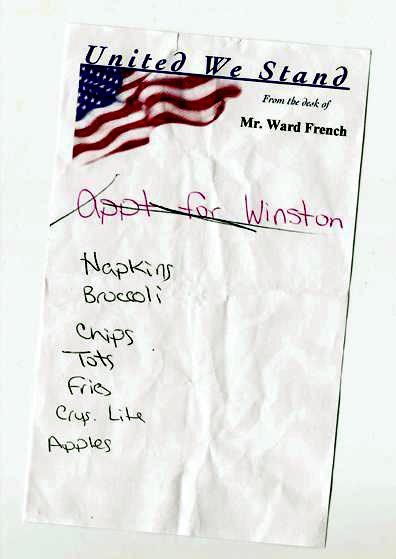 United We Stand
From the desk of
Mr. Ward French
Appt for Winston
Napkins
Broccoli
Chips
Tots
Fries
Crys. Lite
Apples